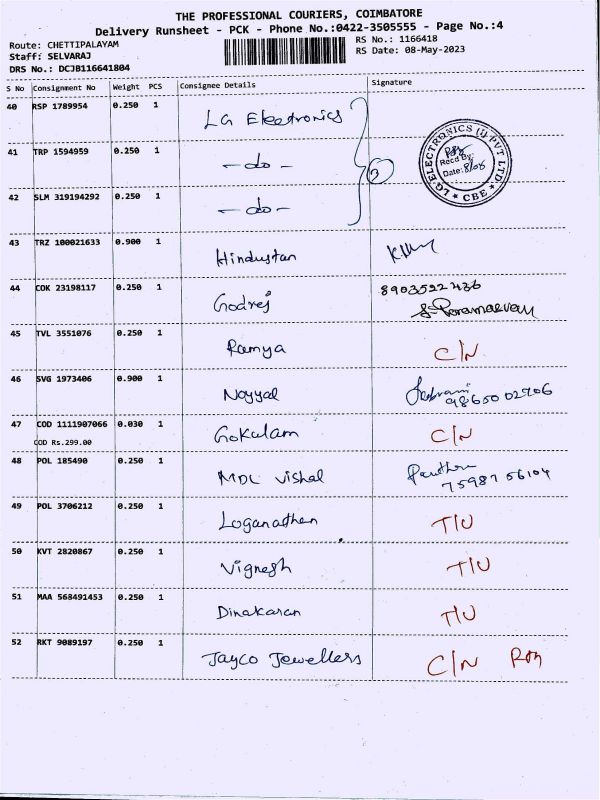 THE PROFESSIONAL COURIERS, COIMBATORE
Delivery Runsheet - PCK - Phone No.:0422-3505555 - Page No.:4
Route: CHETTIPALAYAM
RS No.: 1166418
Staff: SELVARAJ
RS Date: 08-May-2023
DRS No.: DCJB116641804
S No Consignment No Weight PCS Consignee Details Signature
40 RSP 1789954 0.250 1 LG Electronics
41 TRP 1594959 0.250 1 -do-
42 SLM 319194292 0.250 1 -do-
3
LG ELECTRONICS (I) PVT LTD.
Recd By:
Date: 8/05
* CBE *
43 TRZ 100021633 0.900 1 Hindustan
44 COK 23198117 0.250 1 Godrej 8903522436
45 TVL 3551076 0.250 1 Ramya C/N
46 SVG 1973406 0.900 1 Noyyal 98650 02906
47 COD 1111907066 0.030 1 Gokulam C/N
COD Rs.299.00
48 POL 185490 0.250 1 MDL Vishal 75987 56104
49 POL 3706212 0.250 1 Loganathan T/U
50 KVT 2820867 0.250 1 Vignesh T/U
51 MAA 568491453 0.250 1 Dinakaran T/U
52 RKT 9089197 0.250 1 Jayco Jewellers C/N